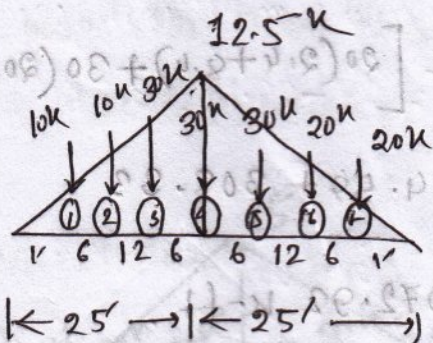 12.5 K
10K 10K 30K 30K 30K 20K 20K
1 2 3 4 5 6 7
1' 6 12 6 6 12 6 1'
|← 25' →|← 25' →|